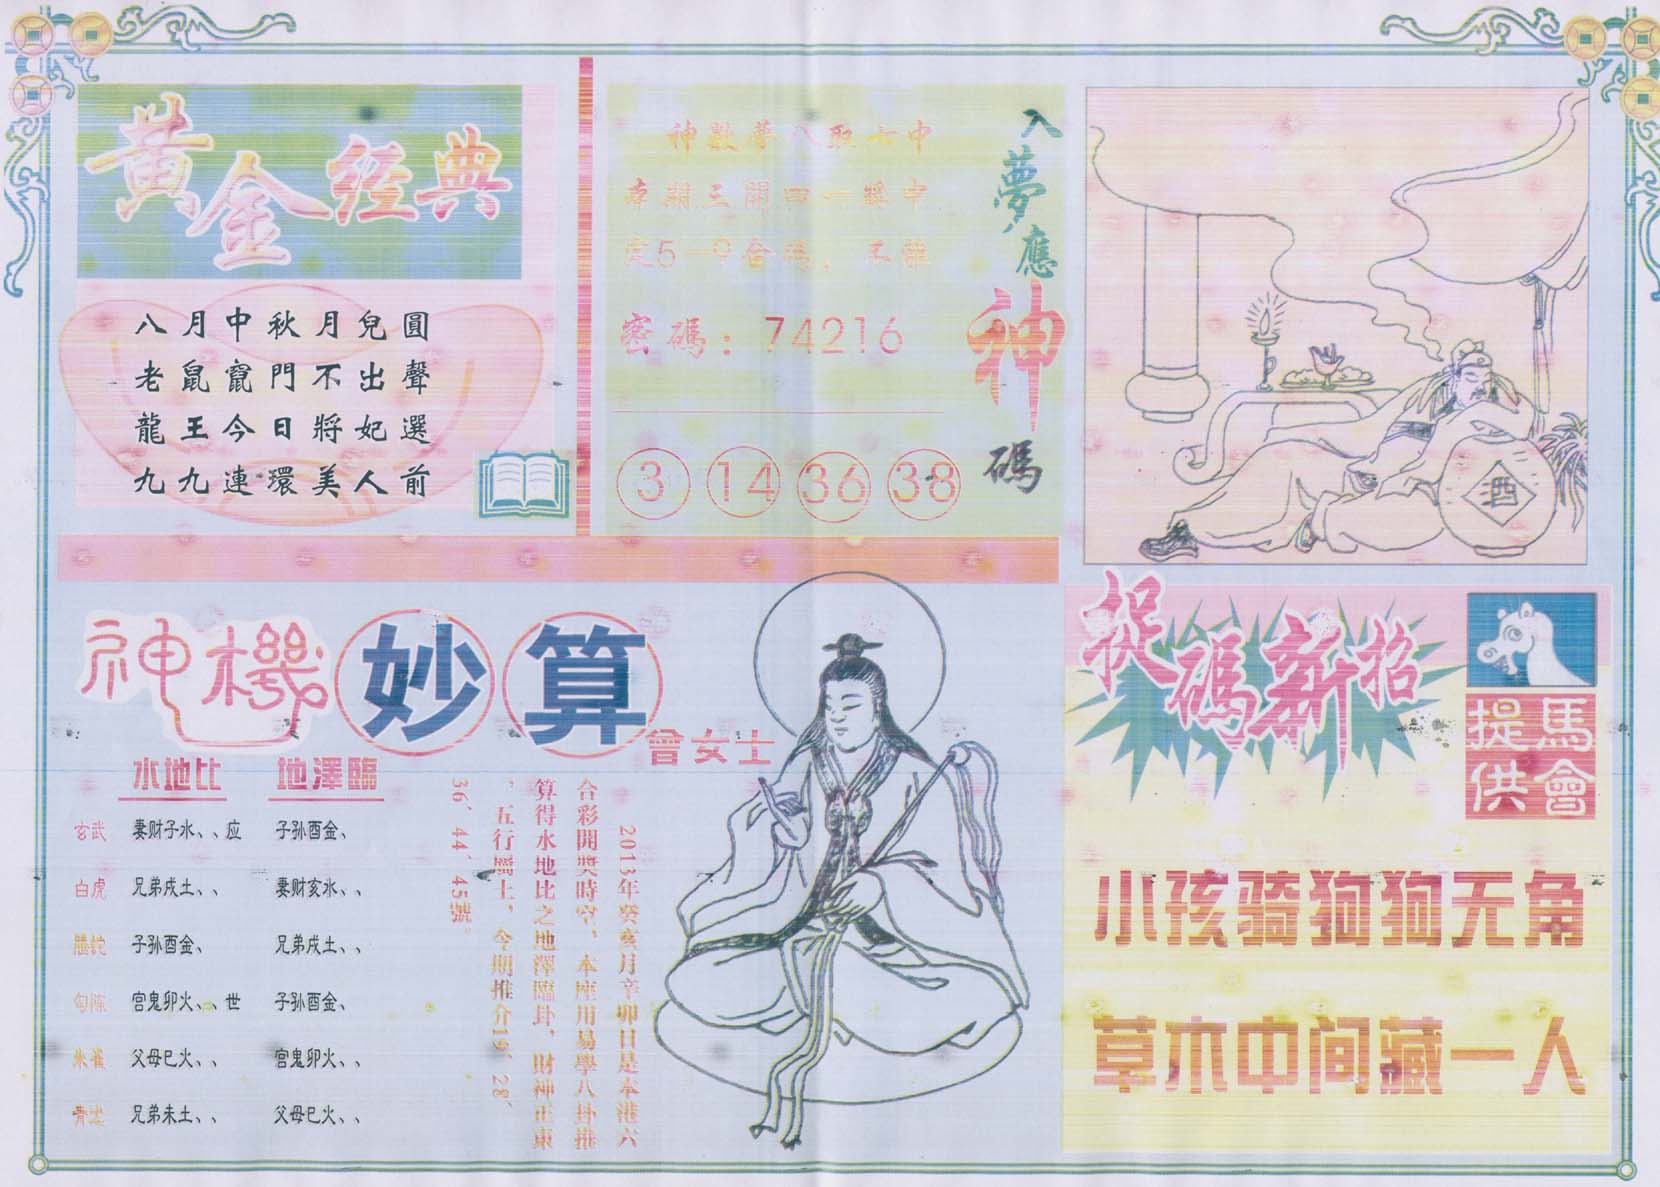 黃金经典
八月中秋月兒圓
老鼠竄門不出聲
龍王今日將妃選
九九連環美人前
神數夢入取七中
本期三開四一獎中
定5-9合碼,不離
密碼:74216
3 14 36 38
入夢應神碼
酒
神機妙算
曾女士
水地比 地澤臨
玄武 妻财子水、、应 子孙酉金、
白虎 兄弟戌土、、 妻财亥水、、
螣蛇 子孙酉金、 兄弟戌土、、
勾陈 官鬼卯火、、世 子孙酉金、
朱雀 父母巳火、、 官鬼卯火、、
青龙 兄弟未土、、 父母巳火、、
2013年癸亥月辛卯日是本港六
合彩開獎時空,本座用易學八卦推
算得水地比之地澤臨卦,財神正東
,五行屬土,今期推介19、28、
36、44、45號。
捉碼新招
馬會提供
小孩骑狗狗无角
草木中间藏一人